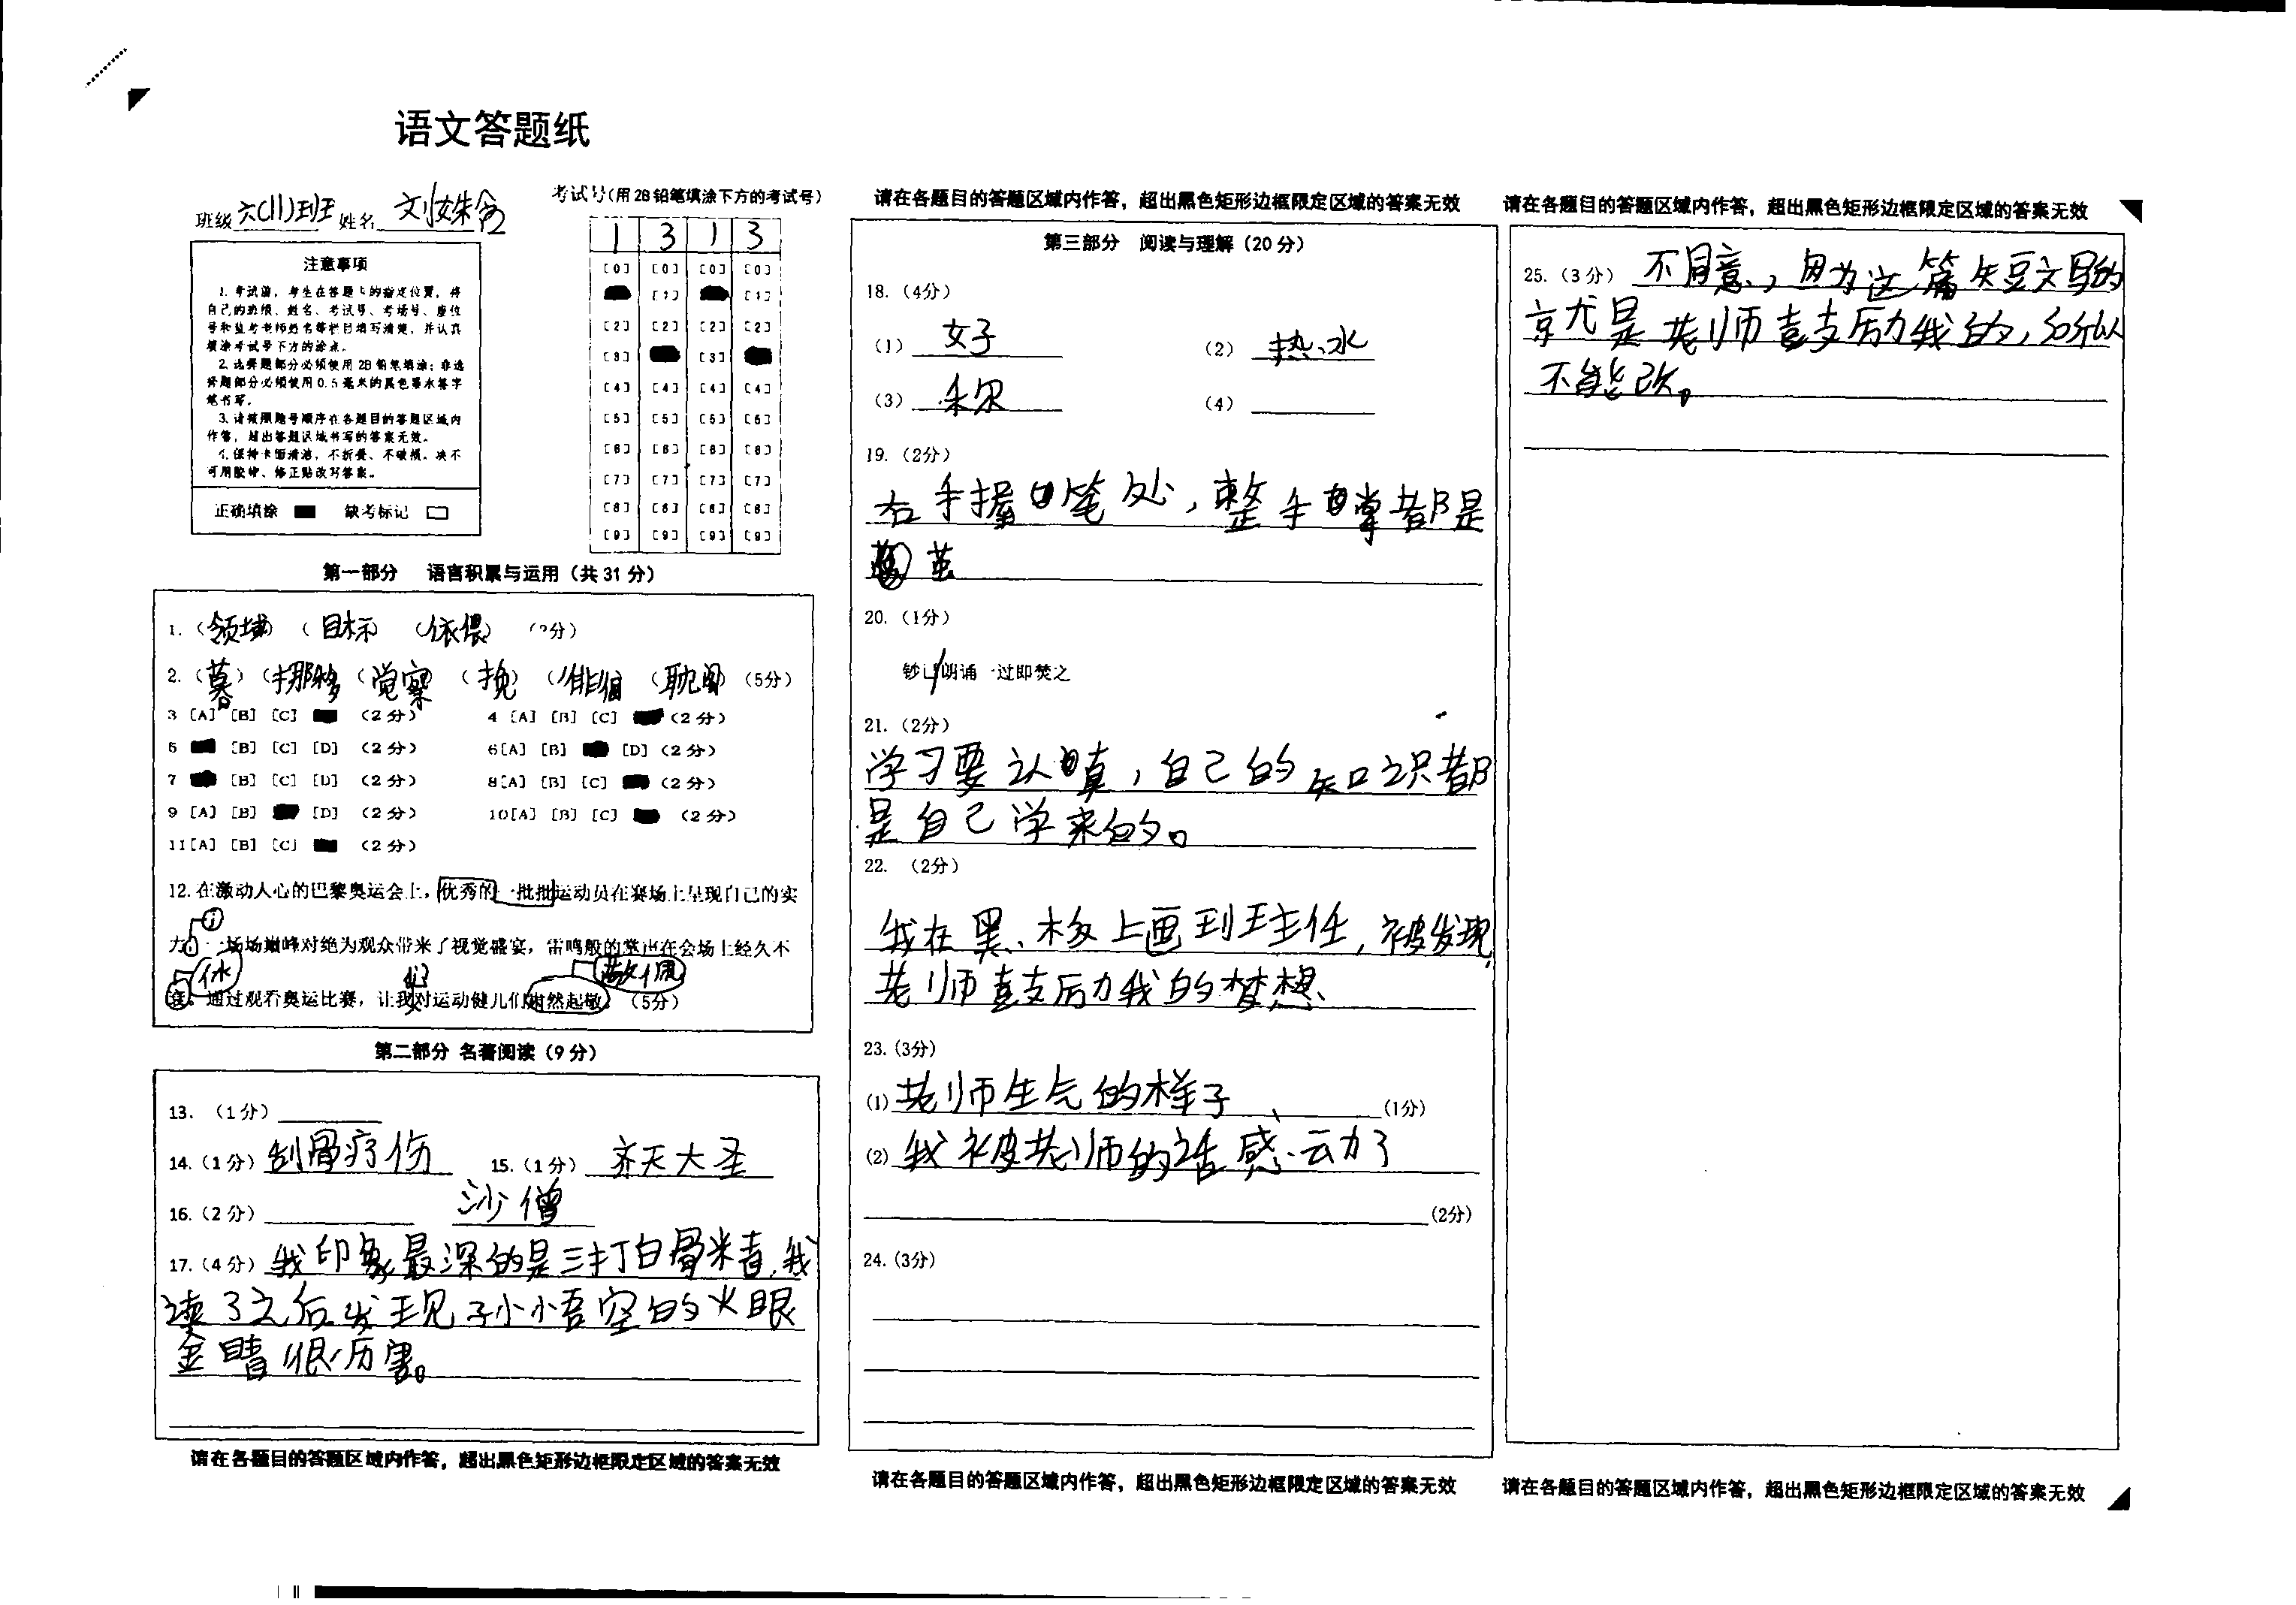 语文答题纸
班级 六(11)班 姓名 刘姝含
考试号(用2B铅笔填涂下方的考试号)
1 3 1 3
[0] [0] [0] [0]
[1] [1]
[2] [2] [2] [2]
[3] [3]
[4] [4] [4] [4]
[5] [5] [5] [5]
[6] [6] [6] [6]
[7] [7] [7] [7]
[8] [8] [8] [8]
[9] [9] [9] [9]
注意事项
1.考试前，考生在答题卡的指定位置，将
自己的班级、姓名、考试号、考场号、座位
号和监考老师姓名等栏目填写清楚，并认真
填涂考试号下方的涂点。
2.选择题部分必须使用2B铅笔填涂；非选
择题部分必须使用0.5毫米的黑色墨水签字
笔书写。
3.请按照题号顺序在各题目的答题区域内
作答，超出答题区域书写的答案无效。
4.保持卡面清洁，不折叠、不破损。决不
可用胶带、修正贴改写答案。
正确填涂 缺考标记
第一部分 语言积累与运用（共31分）
1.（领域）（目标）（依偎）（3分）
2.（暮）（挪移）（觉察）（挽）（徘徊）（耽阁）（5分）
3 [A] [B] [C] （2分） 4 [A] [B] [C] （2分）
5 [B] [C] [D] （2分） 6[A] [B] [D]（2分）
7 [B] [C] [D] （2分） 8[A] [B] [C] （2分）
9 [A] [B] [D] （2分） 10[A] [B] [C] （2分）
11[A] [B] [C] （2分）
12.在激动人心的巴黎奥运会上，优秀的一批批运动员在赛场上呈现自己的实
力。一场场巅峰对绝为观众带来了视觉盛宴，雷鸣般的掌声在会场上经久不
通过观看奥运比赛，让我对运动健儿们肃然起敬。（5分）
敬佩
第二部分 名著阅读（9分）
13.（1分）
14.（1分）刮骨疗伤 15.（1分）齐天大圣
16.（2分） 沙僧
17.（4分）我印象最深的是三打白骨米青，我
读了之后发现孙小吾空的火眼
金睛很厉害。
请在各题目的答题区域内作答，超出黑色矩形边框限定区域的答案无效
请在各题目的答题区域内作答，超出黑色矩形边框限定区域的答案无效
第三部分 阅读与理解（20分）
18.（4分）
（1）女子 （2）热水
（3） （4）
19.（2分）
右手握笔处，整手掌都是
茧
20.（1分）
钞毕朗诵一过即焚之
21.（2分）
学习要认真，自己的知识都
是自己学来的。
22.（2分）
我在黑板上画到班主任，被发现，
老师鼓励我的梦想
23.（3分）
（1）老师生气的样子（1分）
（2）我被老师的话感动了
（2分）
24.（3分）
请在各题目的答题区域内作答，超出黑色矩形边框限定区域的答案无效
请在各题目的答题区域内作答，超出黑色矩形边框限定区域的答案无效
25.（3分）不同意，因为这篇短文写的
就是老师鼓励我的，所以
不能改。
请在各题目的答题区域内作答，超出黑色矩形边框限定区域的答案无效